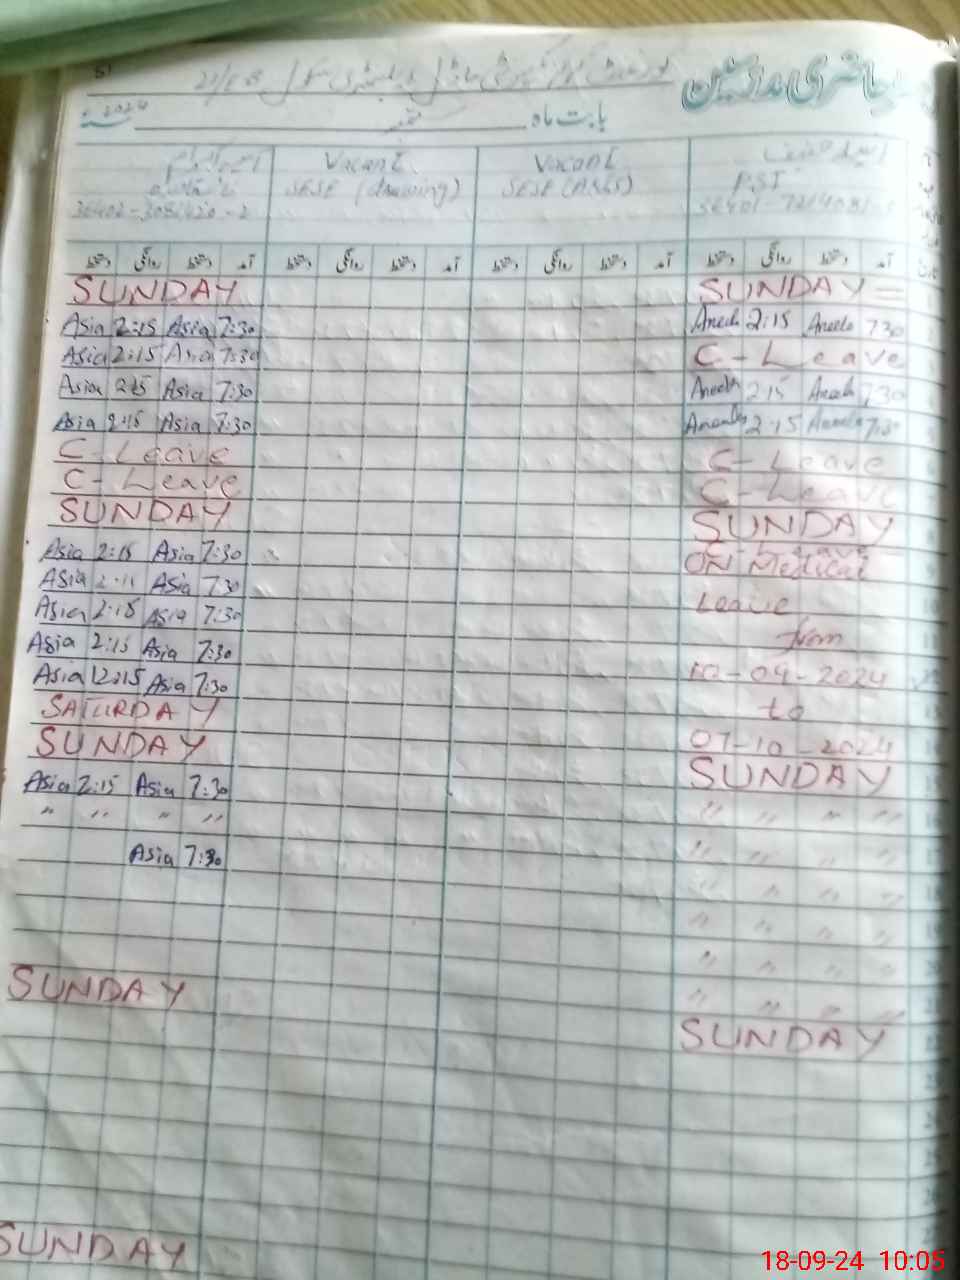 حاضری مدرسین
بابت ماہ ستمبر 2024
Vacant Vacant
SESE (drawing) SESE (Arts) PST
آمد دستخط روانگی دستخط آمد دستخط روانگی دستخط آمد دستخط روانگی دستخط آمد دستخط روانگی دستخط
SUNDAY SUNDAY
Asia 2:15 Asia 7:30 2:15 Aneela 7:30
Asia 2:15 Asia 7:30 C - Leave
Asia 2:15 Asia 7:30 2:15 7:30
Asia 2:15 Asia 7:30 2:15 Aneela 7:30
C - Leave C - Leave
C - Leave C - Leave
SUNDAY SUNDAY
Asia 2:15 Asia 7:30 ON Medical
Asia Asia 7:30 Leave
Asia 2:15 Asia 7:30 from
Asia 2:15 Asia 7:30 -09-2024
Asia 12:15 Asia 7:30 to
SATURDAY 07-10-2024
SUNDAY SUNDAY
Asia 2:15 Asia 7:30 " " " "
" " " " " " " "
Asia 7:30 " " " "
" " " "
" " " "
" " " "
SUNDAY SUNDAY
SUNDAY
18-09-24 10:05